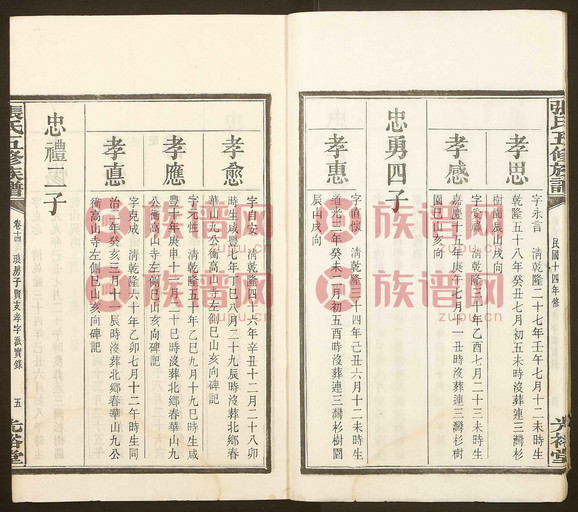 張氏五修族譜
民國十四年修
光裕堂
孝思
字永言 清乾隆二十七年壬午七月十二未時生
乾隆五十八年癸丑七月初五未時沒葬連三灣杉
樹園辰山戌向
孝感
字安 清乾隆三十年乙酉七月二十三未時生
嘉慶十五年庚午七月十一丑時沒葬連三灣杉樹
園巳山亥向
忠勇四子
孝惠
字直懷 清乾隆三十四年己丑六月十二未時生
道光三年癸未二月初五酉時沒葬連三灣杉樹園
辰山戌向
孝愈
字時安 清乾隆四十六年辛丑十二月二十八卯
時生咸豐七年丁巳八月二十九辰時沒葬北鄉春
華山九公衝高山寺左側巳山亥向碑記
孝應
字元恆 清乾隆五十年乙巳九月十九巳時生咸
豐十年庚申十二月二十巳時沒葬北鄉春華山九
公衝高山寺左側巳山亥向碑記
孝悳
字克成 清乾隆六十年乙卯七月十二午時生同
治二年癸亥三月十一辰時沒葬北鄉春華山九公
衝高山寺左側巳山亥向碑記
忠禮二子
張氏五修族譜
卷十四 房子賢支孝字派實錄
五
光裕堂
族譜网
zupu.cn
族譜网
zupu.cn